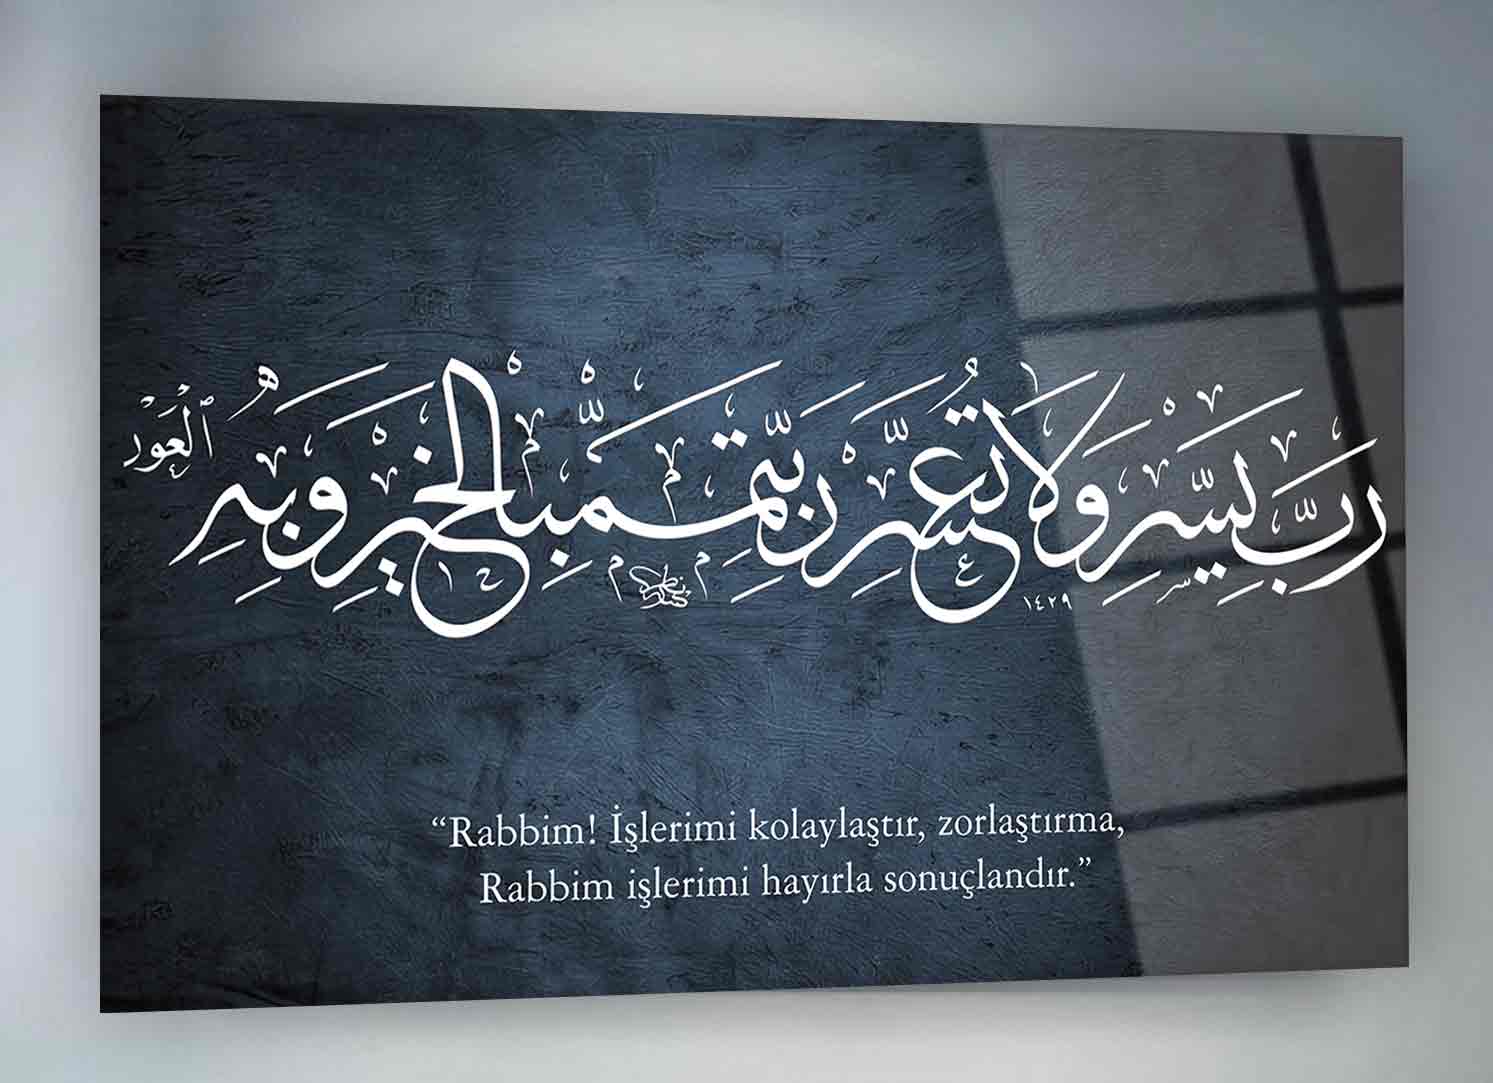 رَبِّ يَسِّرْ وَلَا تُعَسِّرْ رَبِّ تَمِّمْ بِالْخَيْرِ وَبِهِ ٱلْعَوْن
١٤٢٩
“Rabbim! İşlerimi kolaylaştır, zorlaştırma,
Rabbim işlerimi hayırla sonuçlandır.”